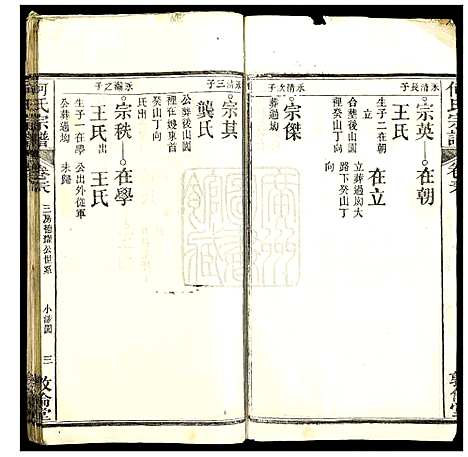 永清長子
宗英——在朝
王氏
生子二在朝
在立
合塟後山園
立葬過坳大
路下癸山丁
向
在立
永清次子
宗傑
葬過坳
永清三子
宗其
龔氏
公葬後山園
裡在嫂東首
癸山丁向
氏出
永瀚之子
宗秩——在學
王氏出
王氏
生子一在學
公出外從軍
公葬過坳
未歸
何氏宗譜
卷
三房德躍公世系
小
三
敦倫堂